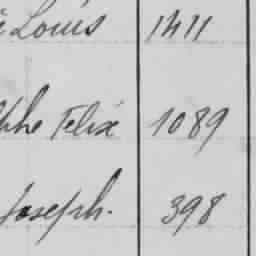 Louis 1411
Felix 1089
Joseph. 398